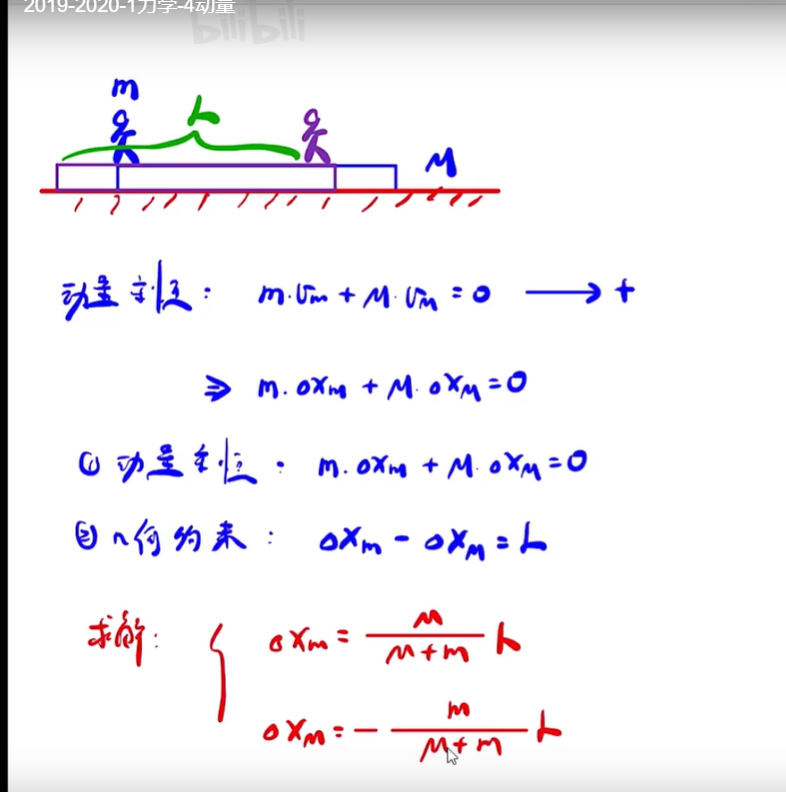 2019-2020-1力学-4动量
bilibili
m
L
M
动量守恒: m·υm + M·υM = 0 ⟶ +
⇒ m·Δxm + M·ΔxM = 0
① 动量守恒: m·Δxm + M·ΔxM = 0
② 几何约束: Δxm - ΔxM = L
求解: { Δxm = M/(M+m) L
ΔxM = - m/(M+m) L